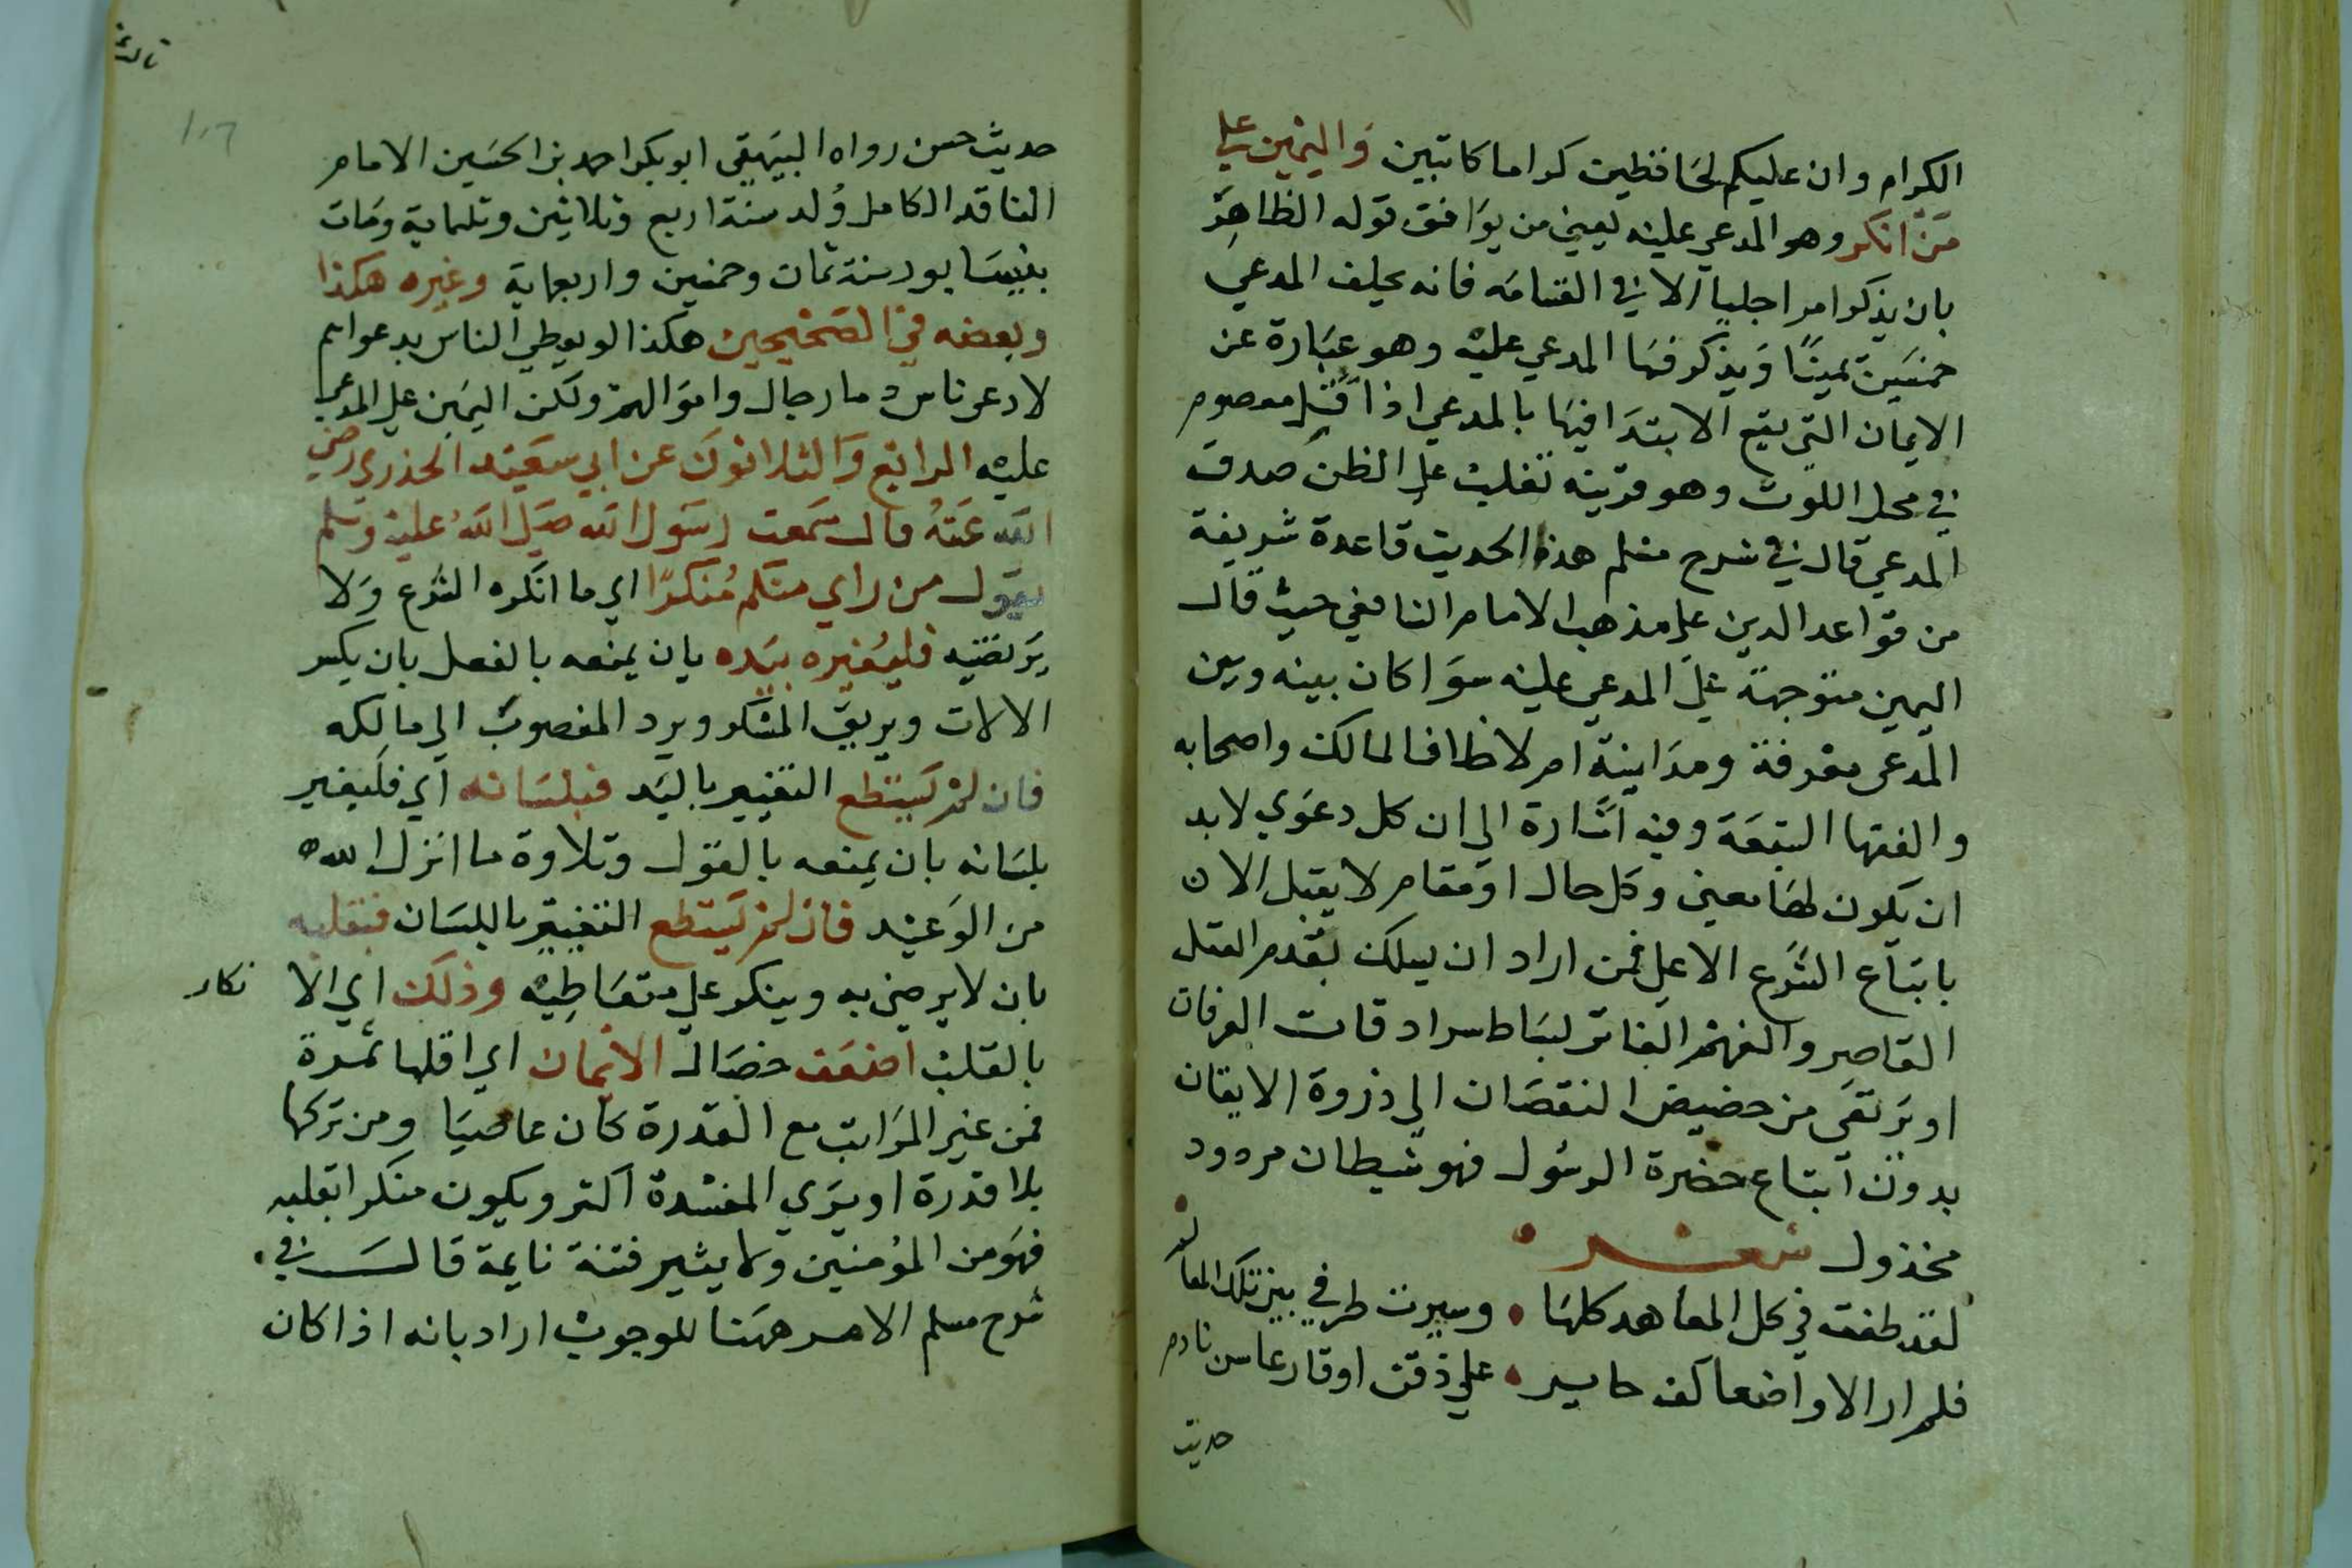 الكرام وان عليكم لحافظين كراما كاتبين واليمين علي
من انكر وهو المدعي عليه يعني من يوافق قوله الظاهر
بان يذكر امرا جليا الا في القسامه فانه يحلف المدعي
خمسين يمينا ويذكر فيها المدعي عليه وهو عبارة عن
الايمان التي يقع الابتدا فيها بالمدعي اذا قتل معصوم
في محل اللوث وهو قرينه تغلب علي الظن صدق
المدعي قال في شرح مسلم هذا الحديث قاعدة شريفة
من قواعد الدين علي مذهب الامام الشافعي حيث قال
اليمين متوجهة علي المدعي عليه سوا كان بينه وبين
المدعي معرفة ومداينة ام لا خلافا لمالك واصحابه
والفقها السبعة وفيه اشارة الي ان كل دعوي لا بد
ان يكون لها معين وكل حال او مقام لا يقبل الا ن
باتباع الشرع الاعلي فمن اراد ان يسلك بقدم العقل
القاصر والفهم الفاتر لبساط سرادقات العرفان
او يرتقي من حضيض النقصان الي ذروة الايقان
بدون اتباع حضرة الرسول فهو شيطان مردود
مخذول شعر
لقد طفت في كل المعاهد كلها • وسيرت طرفي بين تلك المعالم
فلم ار الا واضعا كف حاير • علي ذقن او قارعا سن نادم
حديث
حديث حسن رواه البيهقي ابو بكر احمد بن الحسين الامام
الناقد الكامل ولد سنة اربع وثلاثين وثلماية ومات
بنيسابور سنة ثمان وخمسين واربعماية وغيره هكذا
وبعضه في الصحيحين هكذا لو يعطي الناس بدعواهم
لادعي ناس دما رجال واموالهم ولكن اليمين علي المدعي
عليه الرابع والثلاثون عن ابي سعيد الخدري رضي
الله عنه قال سمعت رسول الله صلي الله عليه وسلم
يقول من راي منكم منكرا اي ما انكره الشرع ولا
يرتضيه فليغيره بيده بان يمنعه بالفعل بان يكسر
الالات ويريق المسكر ويرد المغصوب الي مالكه
فان لم يستطع التغيير باليد فبلسانه اي فليغير
بلسانه بان يمنعه بالقول وتلاوة ما انزل الله
من الوعيد فان لم يستطع التغيير باللسان فبقلبه
بان لا يرضي به وينكر علي متعاطيه وذلك اي الا نكار
بالقلب اضعف خصال الايمان اي اقلها ثمرة
فمن غير المراتب مع القدرة كان عاصيا ومن تركها
بلا قدرة او يري المفسدة اكثر ويكون منكرا بقلبه
فهو من المؤمنين ولا يثير فتنة نايمة قال في
شرح مسلم الامر ههنا للوجوب اراد بانه اذا كان